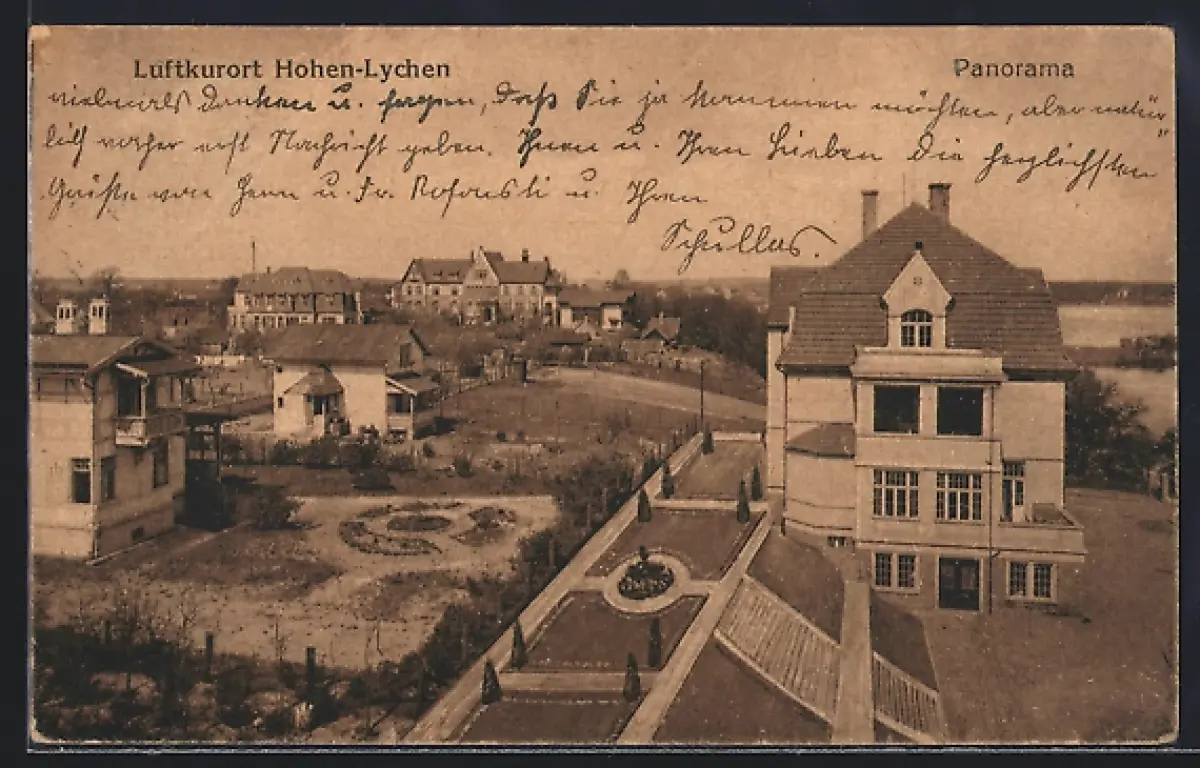 Luftkurort Hohen-Lychen
Panorama
vielmals danken u. sagen, daß Sie ja kommen möchten, aber natür„
lich vorher erst Nachricht geben. Ihnen u. Ihren Lieben die herzlichsten
Grüße von Herrn u. Fr. u. Ihren